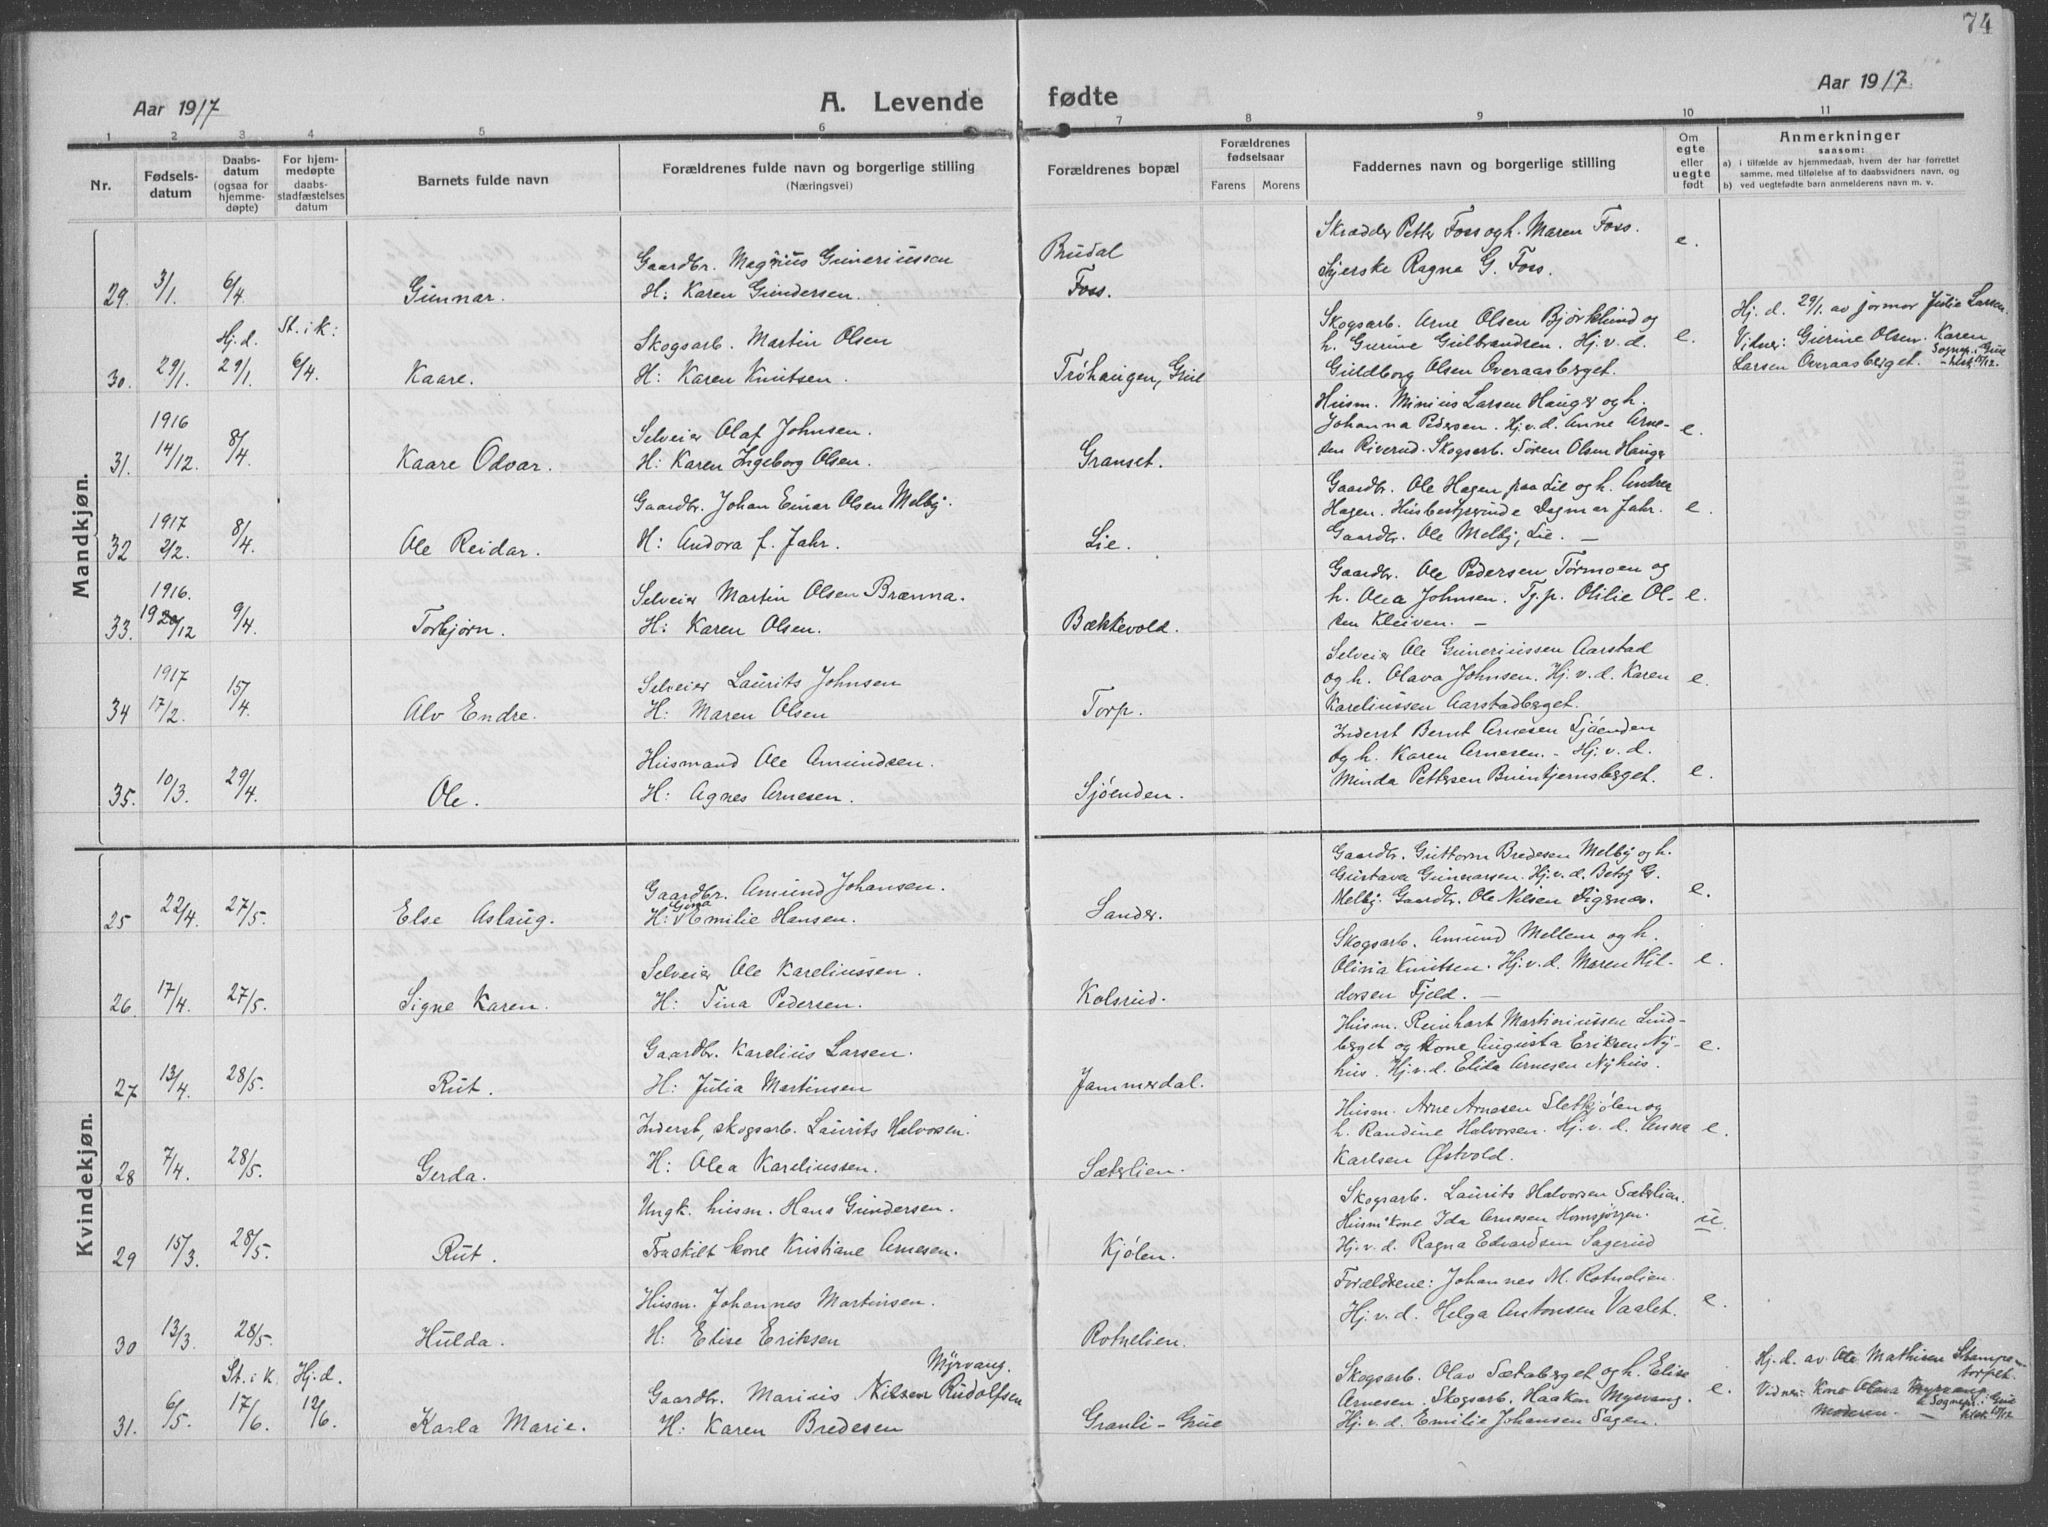 74
Aar 1917
A. Levende fødte
Aar 1917
1 2 3 4 5 6 7 8 9 10 11
Nr.
Fødsels-
datum
Daabs-
datum
(ogsaa for
hjemme-
døpte)
For hjem-
medøpte
daabs-
stadfæstelses
datum
Barnets fulde navn
Forældrenes fulde navn og borgerlige stilling
(Næringsvei)
Forældrenes bopæl
Forældrenes
fødselsaar
Farens Morens
Faddernes navn og borgerlige stilling
Om
egte
eller
uegte
født
Anmerkninger
saasom:
a) i tilfælde av hjemmedaab, hvem der har forrettet
samme, med tilføielse af to daabsvidners navn, og
b) ved uegtefødte barn anmelderens navn m. v.
Mandkjøn.
29. 3/1. 6/4. Gunnar.
Gaardbr. Magnus Guneriussen
H: Karen Gundersen.
Brudal
Foss.
Skrædder Petter Foss og h. Maren Foss.
Syerske Ragna G. Foss.
e.
Hj.d. St. i k:
30. 29/1. 29/1. 6/4. Kaare.
Skogsarb. Martin Olsen
H: Karen Knutsen.
Trøhaugen, Grue
Skogsarb. Arne Olsen Bjørklund og
h. Gurine Gulbrandsen. Hj. v. d.
Guldborg Olsen Overaasberget.
e.
Hj. d. 29/1. av jormor Julie Larsen.
Vidner: Gurine Olsen. Karen
Larsen Overaasberget.
Sognep. i Grue
31. 1916 14/12. 8/4. Kaare Odvar.
Selveier Olaf Johnsen.
H: Karen Ingeborg Olsen.
Granset.
Husm. Minius Larsen Hauger og h.
Johanna Pedersen. Hj. v. d. Anne Arne-
sen Riverud. Skogsarb. Søren Olsen Hauger
e.
32 1917 2/2. 8/4. Ole Reidar.
Gaardbr. Johan Einar Olsen Melby.
H: Andora f. Jahr.
Lie.
Gaardbr. Ole Hagen paa Lie og h. Andrea
Hagen. Husbestyrerinde Dagmar Jahr.
Gaardbr. Ole Melby, Lie. —
e.
33. 1916. 20/12 9/4. Torbjørn.
Selveier Martin Olsen Brænna.
H: Karen Olsen.
Bækkevold.
Gaardbr. Ole Pedersen Tørmoen og
h. Olea Johnsen. Tj. p. Otilie Ol-
sen Kleiven. —
e.
34 1917 17/2. 15/4. Alv Endre.
Selveier Laurits Johnsen
H: Maren Olsen
Torp.
Selveier Ole Guneriussen Aarstad
og h. Olava Johnsen. Hj. v. d. Karen
Kareliussen Aarstadberget.
e.
35. 10/3. 29/4. Ole.
Husmand Ole Amundsen.
H: Agnes Arnesen.
Sjøenden.
Inderst Bernt Arnesen Sjøenden
og h. Karen Arnesen. - Hj. v. d.
Minda Pettersen Buintjernsberget.
e.
Kvindekjøn.
25 22/4. 27/5. Else Aslaug.
Gaardbr. Amund Johansen.
H: Gina Emilie Hansen.
Sander.
Gaardbr. Guttorm Bredesen Melby og h.
Gustava Gunnarsen. Hj. v. d. Betzy G.
Melby. Gaardbr. Ole Nilsen Digernæs.
e.
26. 17/4. 27/5. Signe Karen.
Selveier Ole Kareliussen.
H: Tina Pedersen.
Kolsrud.
Skogsarb. Amund Mellem og h.
Olivia Knutsen. Hj. v. d. Maren Hil-
dorsen Fjeld. —
e.
27 13/4. 28/5. Rut.
Gaardbr. Karelius Larsen.
H: Julia Martinsen
Jammerdal.
Husm. Reinhart Martiniussen Lind-
berget og kone Augusta Eriksen Ny-
hus. Hj. v. d. Elida Arnesen Nyhus.
e.
28 7/4. 28/5. Gerda.
Inderst, skogsarb. Laurits Halvorsen.
H: Olea Kareliussen.
Sæterlien.
Husm. Arne Arnesen Sletkjølen og
h. Randine Halvorsen. Hj. v. d. Anna
Karlsen Østvold.
e.
29 15/3. 28/5. Rut.
Ungk. husm. Hans Gundersen.
Fraskilt kone Kristiane Arnesen.
Kjølen.
Skogsarb. Laurits Halvorsen Sæterlien.
Husm kone Ida Arnesen Homsjorgen.
Hj. v. d. Ragna Edvardsen Sagerud
u.
30 13/3. 28/5. Hulda.
Husm. Johannes Martinsen.
H: Elise Eriksen
Rotnelien.
Forældrene: Johannes M. Rotnelien.
Hj. v. d. Helga Antonsen Vaalet.
e.
St. i k. Hj. d.
31. 6/5. 17/6. 12/6. Karla Marie.
Myrvang.
Gaardbr. Marius Nilsen Rudolfsen
H: Karen Bredesen
Granli - Grue
Skogsarb. Olav Sæteberget og h. Elise
Arnesen. Skogsarb. Haaken Myrvang.
Hj. v. d. Emilie Johansen Sagen.
e.
Hj. d. av Ole Mathisen Stampe-
torpet.
Vidner: Kone Olava Myrvang
Moderen. — Sognepr. i Grue